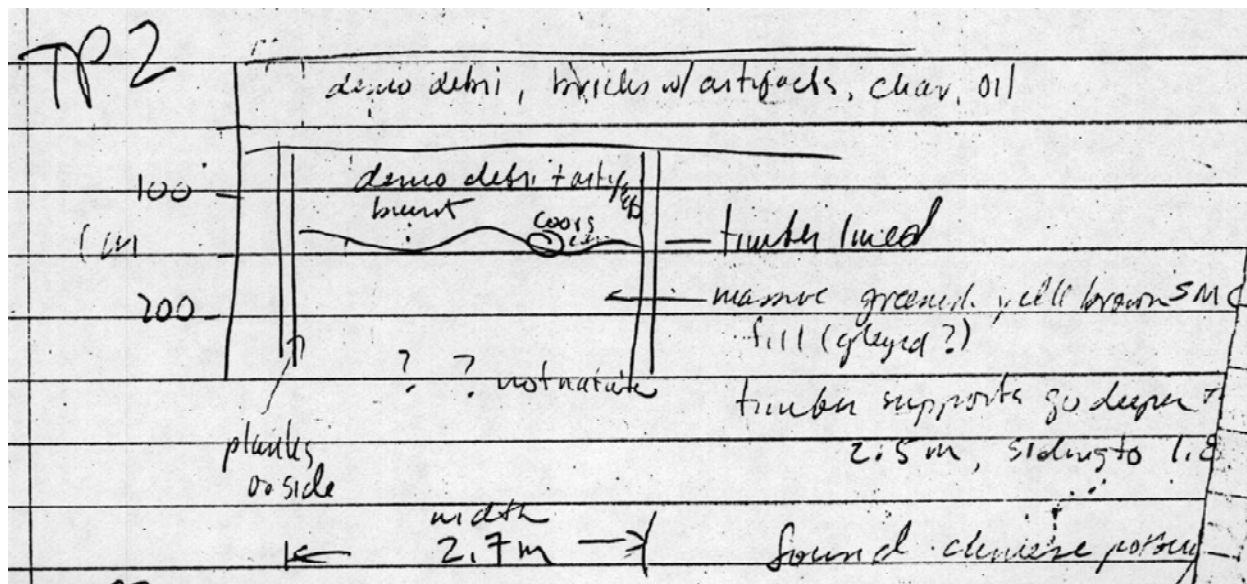 TP2
demo debri, bricks w/ artifacts, char, oil
demo debri + artifacts
100
burnt
coors
1 m
timber lined
massive greenish yell brown SM
200
fill (gleyed ?)
? ? not nature
timber supports go deeper
planks
2.5 m, siding to 1.8
on side
width
2.7m
found chinese pottery